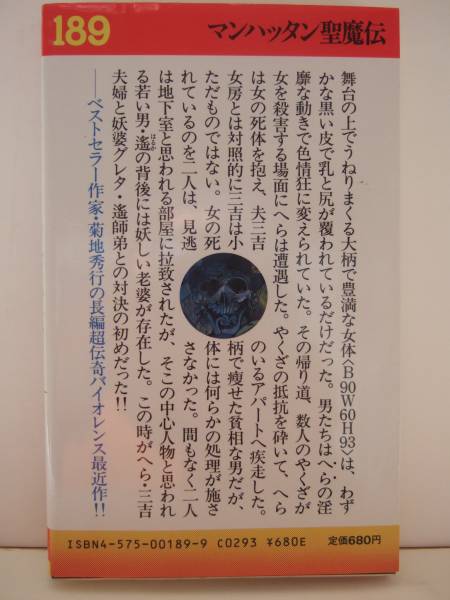 189
マンハッタン聖魔伝
舞台の上でうねりまくる大柄で豊満な女体〈B90W60H93〉は、わず
かな黒い皮で乳と尻が覆われているだけだった。男たちはへらの淫
靡な動きで色情狂に変えられていた。その帰り道、数人のやくざが
女を殺害する場面にへらは遭遇した。やくざの抵抗を砕いて、へら
は女の死体を抱え、夫三吉のいるアパートへ疾走した。
女房とは対照的に三吉は小柄で痩せた貧相な男だが、
ただものではない。女の死体には何らかの処理が施さ
れているのを二人は、見逃さなかった。間もなく二人
は地下室と思われる部屋に拉致されたが、そこの中心人物と思われ
る若い男・遙の背後には妖しい老婆が存在した。この時がへら・三吉
夫婦と妖婆グレタ・遙師弟との対決の初めだった!!
――ベストセラー作家・菊地秀行の長編超伝奇バイオレンス最近作!!
ISBN4-575-00189-9 C0293 ¥680E
定価680円